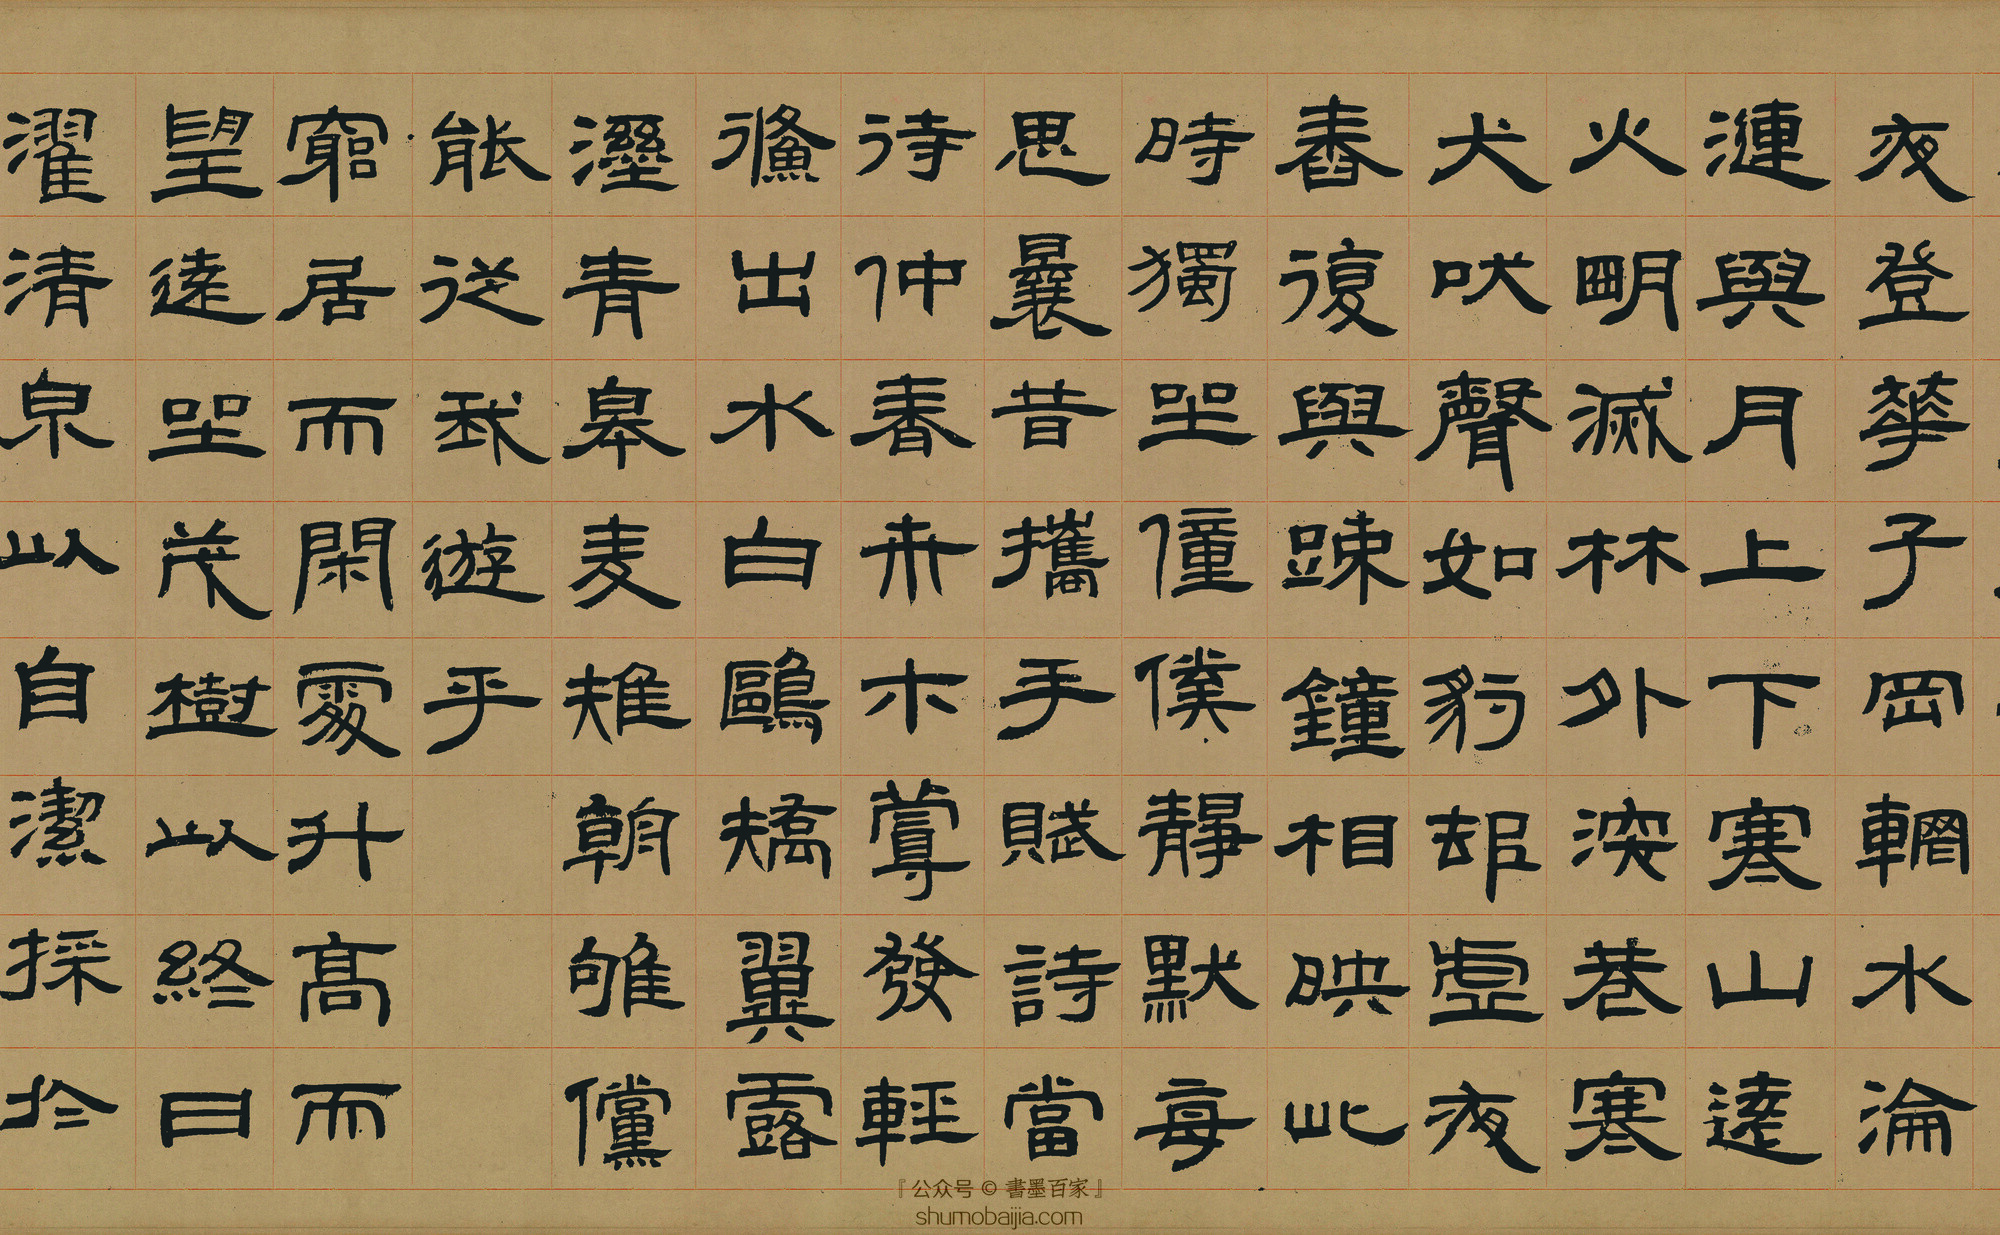 夜登華子岡輞水淪
漣與月上下寒山遠
火明滅林外深巷寒
犬吠聲如豹邨虛夜
舂復與踈鐘相映此
時獨坐僮僕靜默每
思曩昔攜手賦詩當
待仲春卉木蔓發輕
鯈出水白鷗矯翼露
溼青皋麦雉朝雊儻
能從我遊乎
窮居而閑處升高而
望遠坐茂樹以終日
濯清泉以自潔採於
『公众号 © 書墨百家』
shumobaijia.com